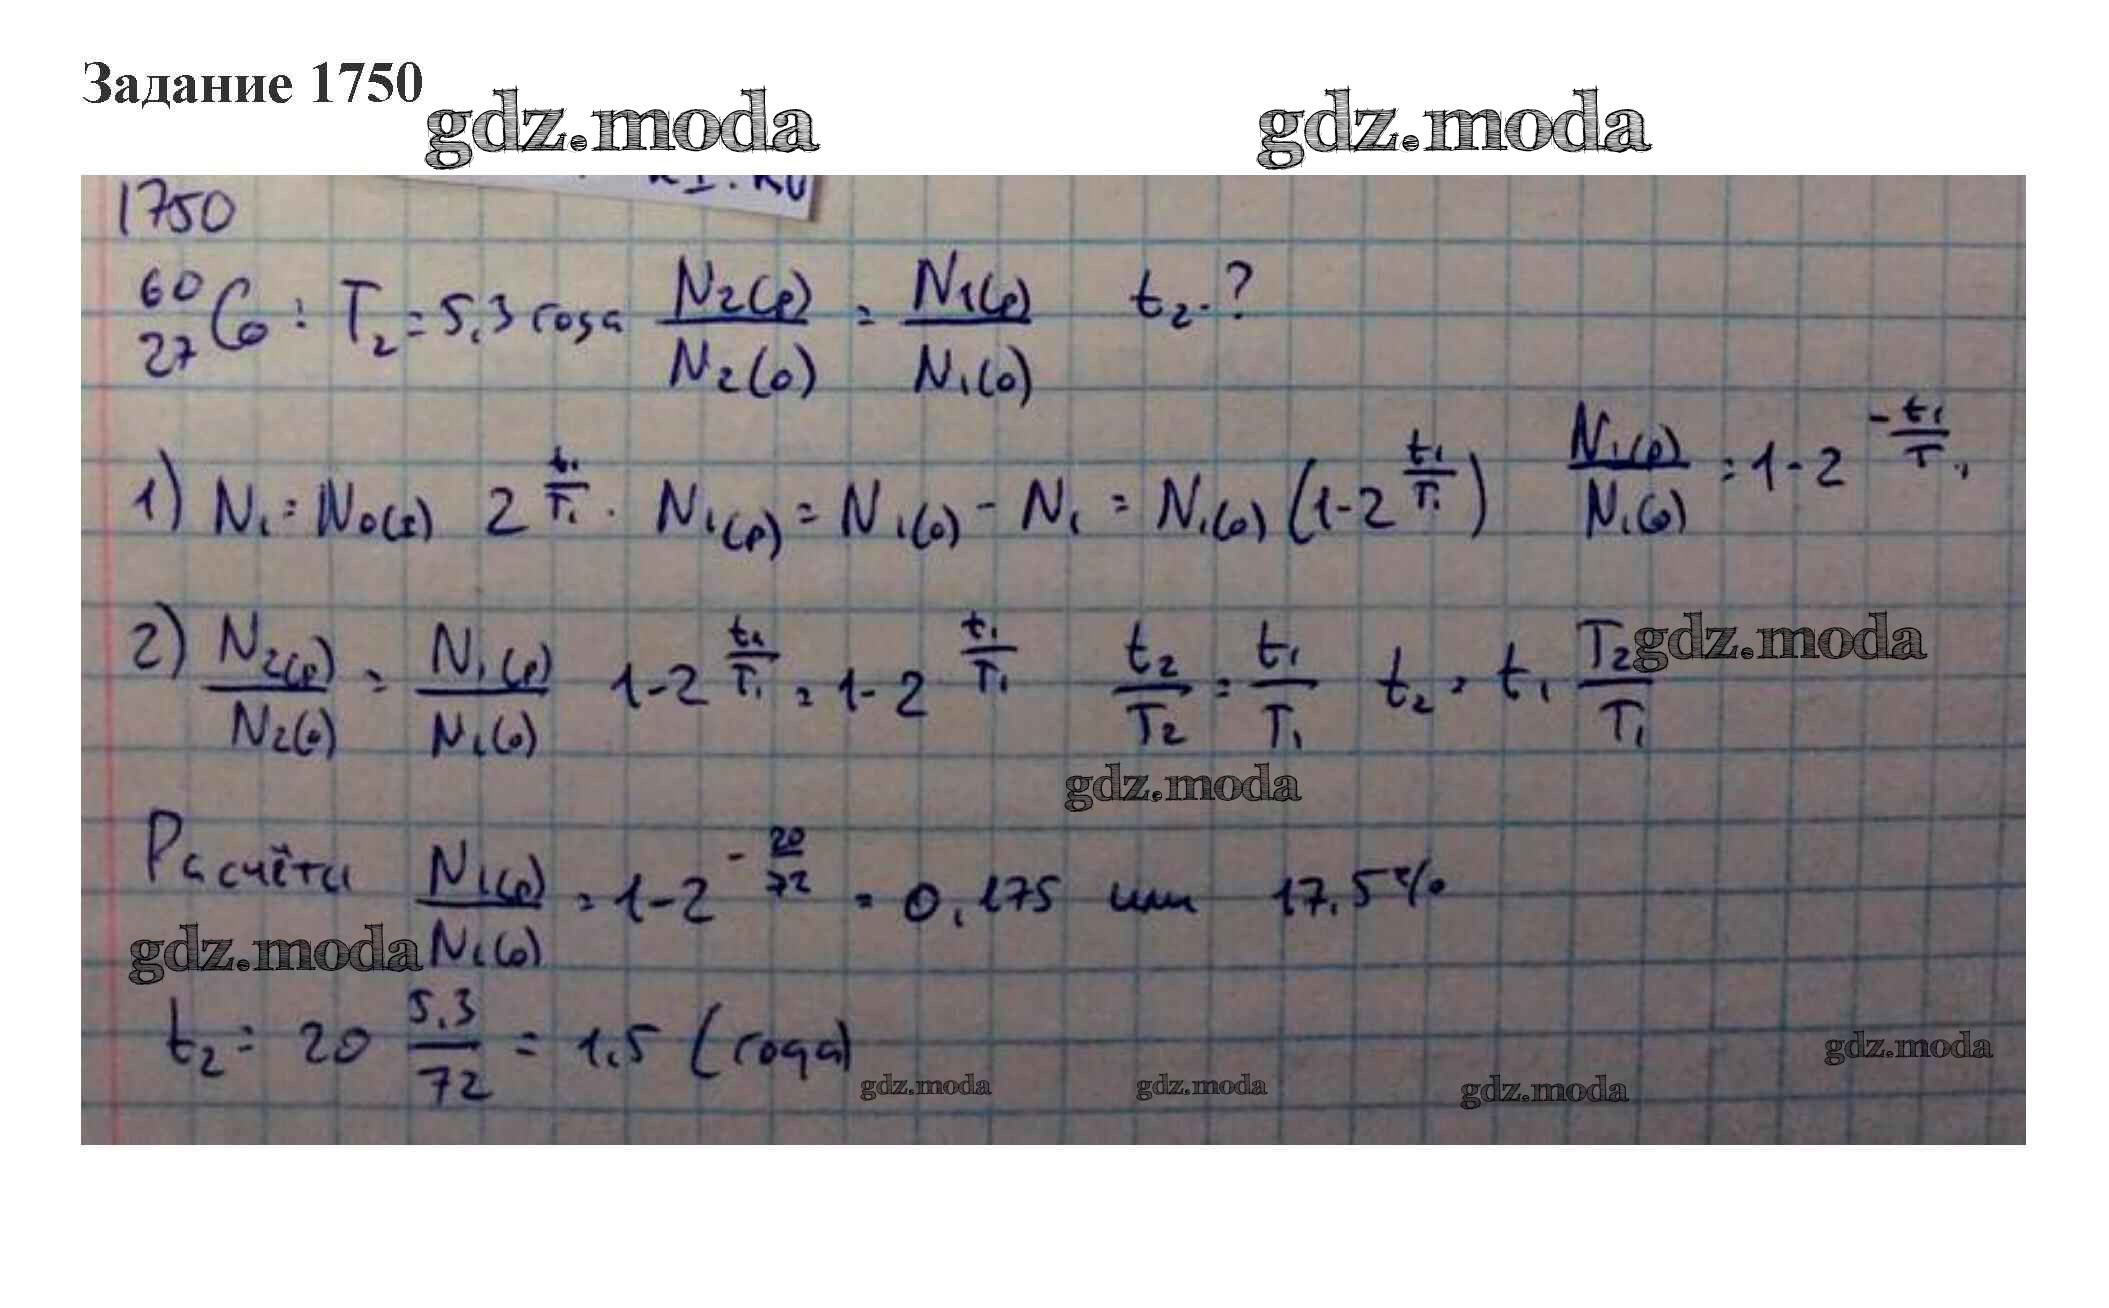 Задание 1750
gdz.moda gdz.moda
1750
⁶⁰₂₇Co : T₂ = 5,3 года N₂(р)/N₂(0) = N₁(р)/N₁(0) t₂ - ?
1) N₁ = N₀(I) 2^(t₁/T₁) . N₁(р) = N₁(0) - N₁ = N₁(0) (1-2^(t₁/T₁)) N₁(р)/N₁(0) = 1-2^(-t₁/T₁)
2) N₂(р)/N₂(0) = N₁(р)/N₁(0) 1-2^(t₁/T₁) = 1-2^(t₁/T₁) t₂/T₂ = t₁/T₁ t₂ = t₁ T₂/T₁ gdz.moda
gdz.moda
Расчёты N₁(р)/N₁(0) = 1-2^(-20/72) = 0,175 или 17,5%
gdz.moda
t₂ = 20 5,3/72 = 1,5 (года)
gdz.moda gdz.moda gdz.moda gdz.moda